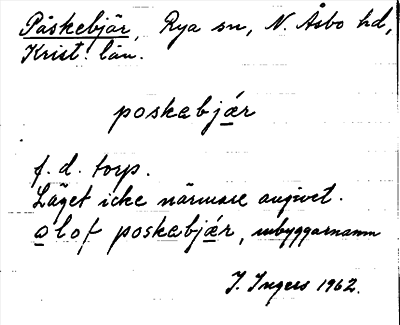 Påskebjär, Rya sn, N. Åsbo hd,
Krist. län.
poskabjær
f. d. torp.
Läget icke närmare angivet.
olof poskabjær, inbyggarnamn
I. Ingers 1962.